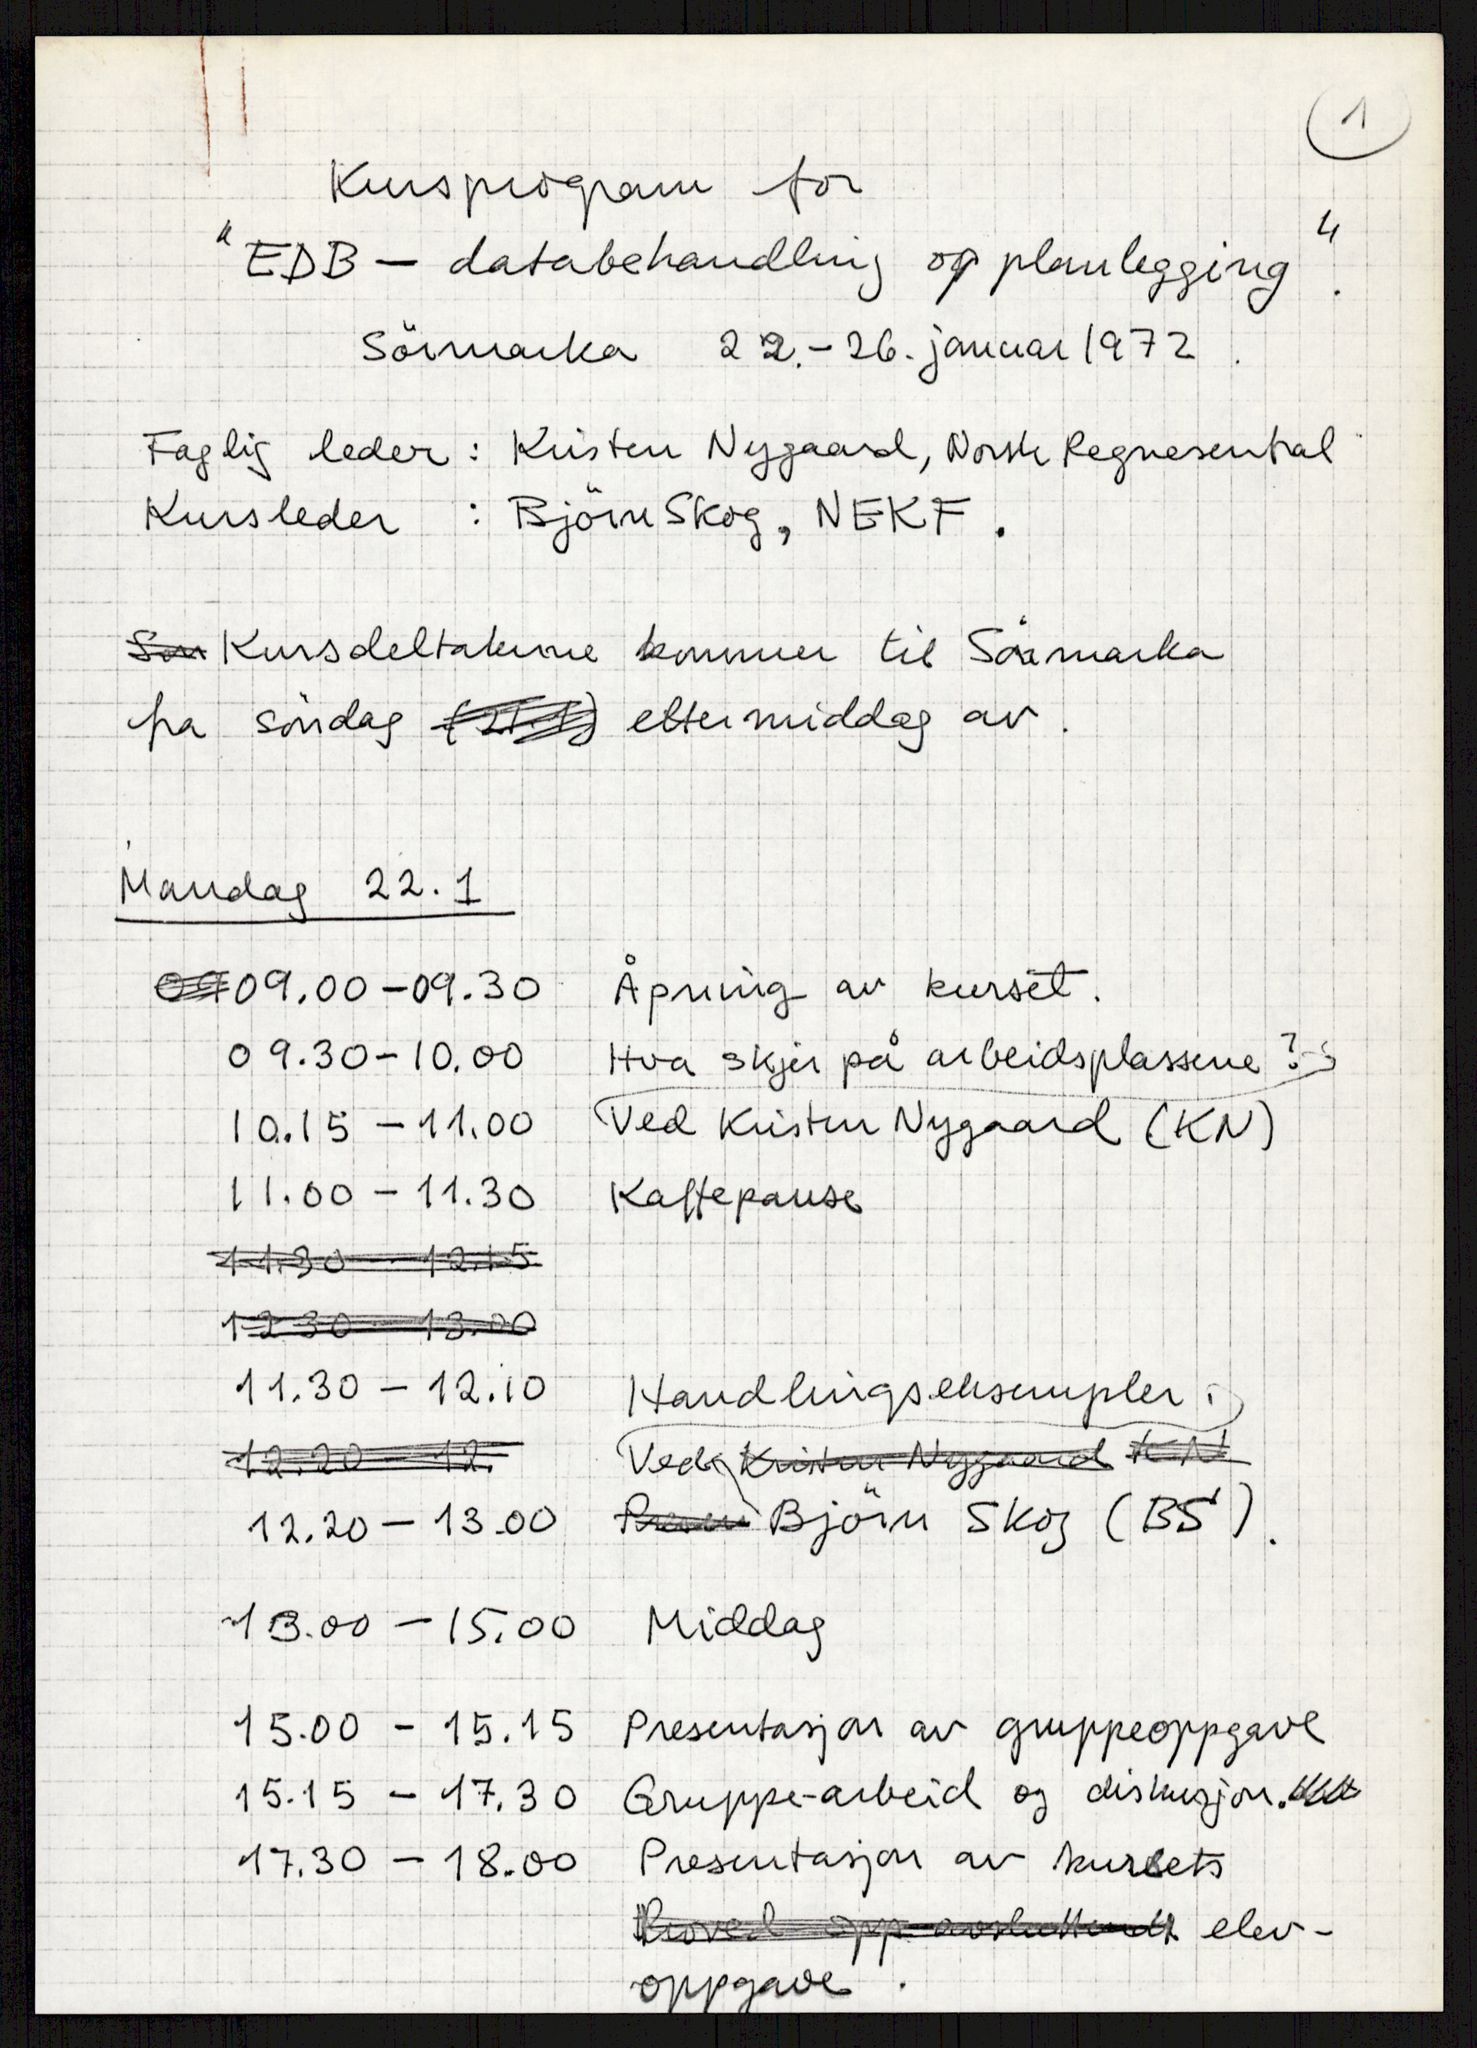 1
Kursprogram for
"EDB — databehandling og planlegging".
Sörmarka 22.-26. januar 1972.
Faglig leder: Kristen Nygaard, Norsk Regnesentral
Kursleder : Björn Skog, NEKF.
Kursdeltakerne kommer til Sörmarka
på söndag ettermiddag av.
Mandag 22.1
09.00 - 09.30 Åpning av kurset.
09.30 - 10.00 Hva skjer på arbeidsplassene?
10.15 - 11.00 Ved Kristen Nygaard (KN)
11.00 - 11.30 Kaffepause
11.30 - 12.15
12.30 - 13.00
11.30 - 12.10 Handlingseksempler.
12.20 - 12. Ved Kristen Nygaard KN
12.20 - 13.00 Björn Skog (BS).
13.00 - 15.00 Middag
15.00 - 15.15 Presentasjon av gruppeoppgave
15.15 - 17.30 Gruppe-arbeid og diskusjon.
17.30 - 18.00 Presentasjon av kursets
elev-
oppgave.